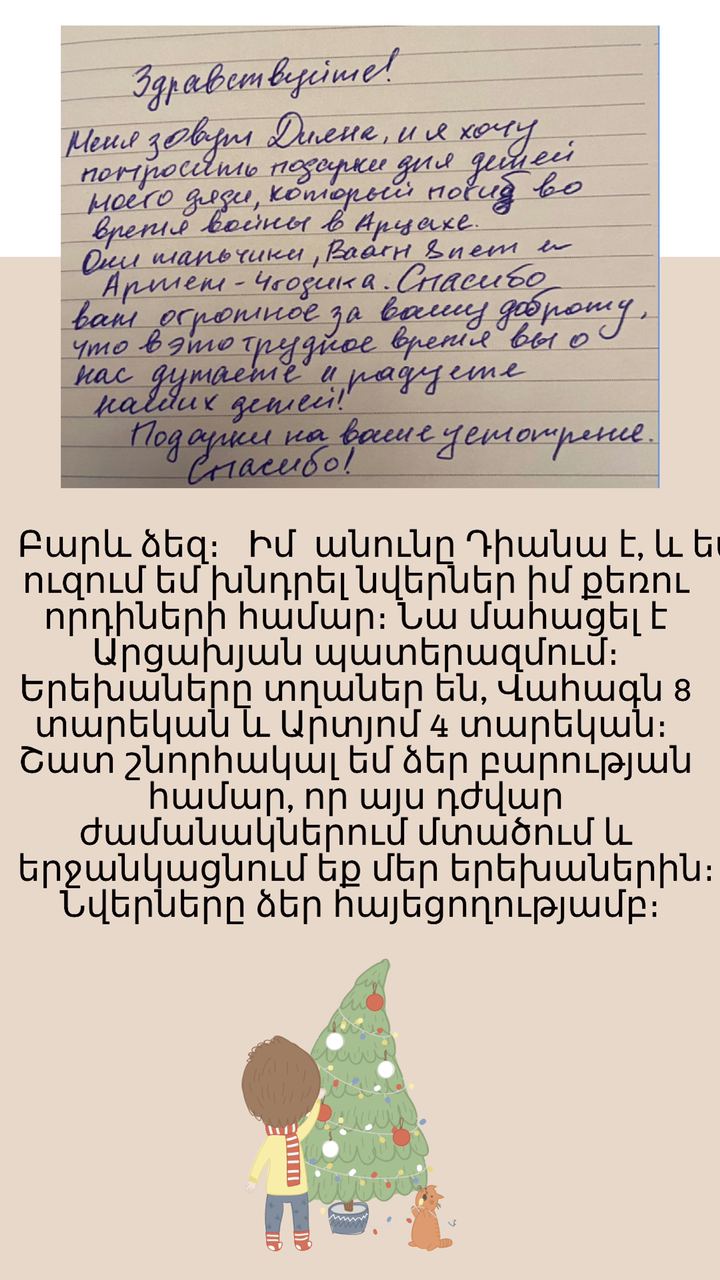 Здравствуйте!
Меня зовут Диана, и я хочу
попросить подарки для детей
моего дяди, который погиб во
время войны в Арцахе.
Они мальчики, Ваагн 8лет и
Артем - 4годика. Спасибо
вам огромное за вашу доброту,
что в это трудное время вы о
нас думаете и радуете
наших детей!
Подарки на ваше усмотрение.
Спасибо!
Բարև ձեզ։ Իմ անունը Դիանա է, և ես
ուզում եմ խնդրել նվերներ իմ քեռու
որդիների համար։ Նա մահացել է
Արցախյան պատերազմում։
Երեխաները տղաներ են, Վահագն 8
տարեկան և Արտյոմ 4 տարեկան։
Շատ շնորհակալ եմ ձեր բարության
համար, որ այս դժվար
ժամանակներում մտածում և
երջանկացնում եք մեր երեխաներին։
Նվերները ձեր հայեցողությամբ։